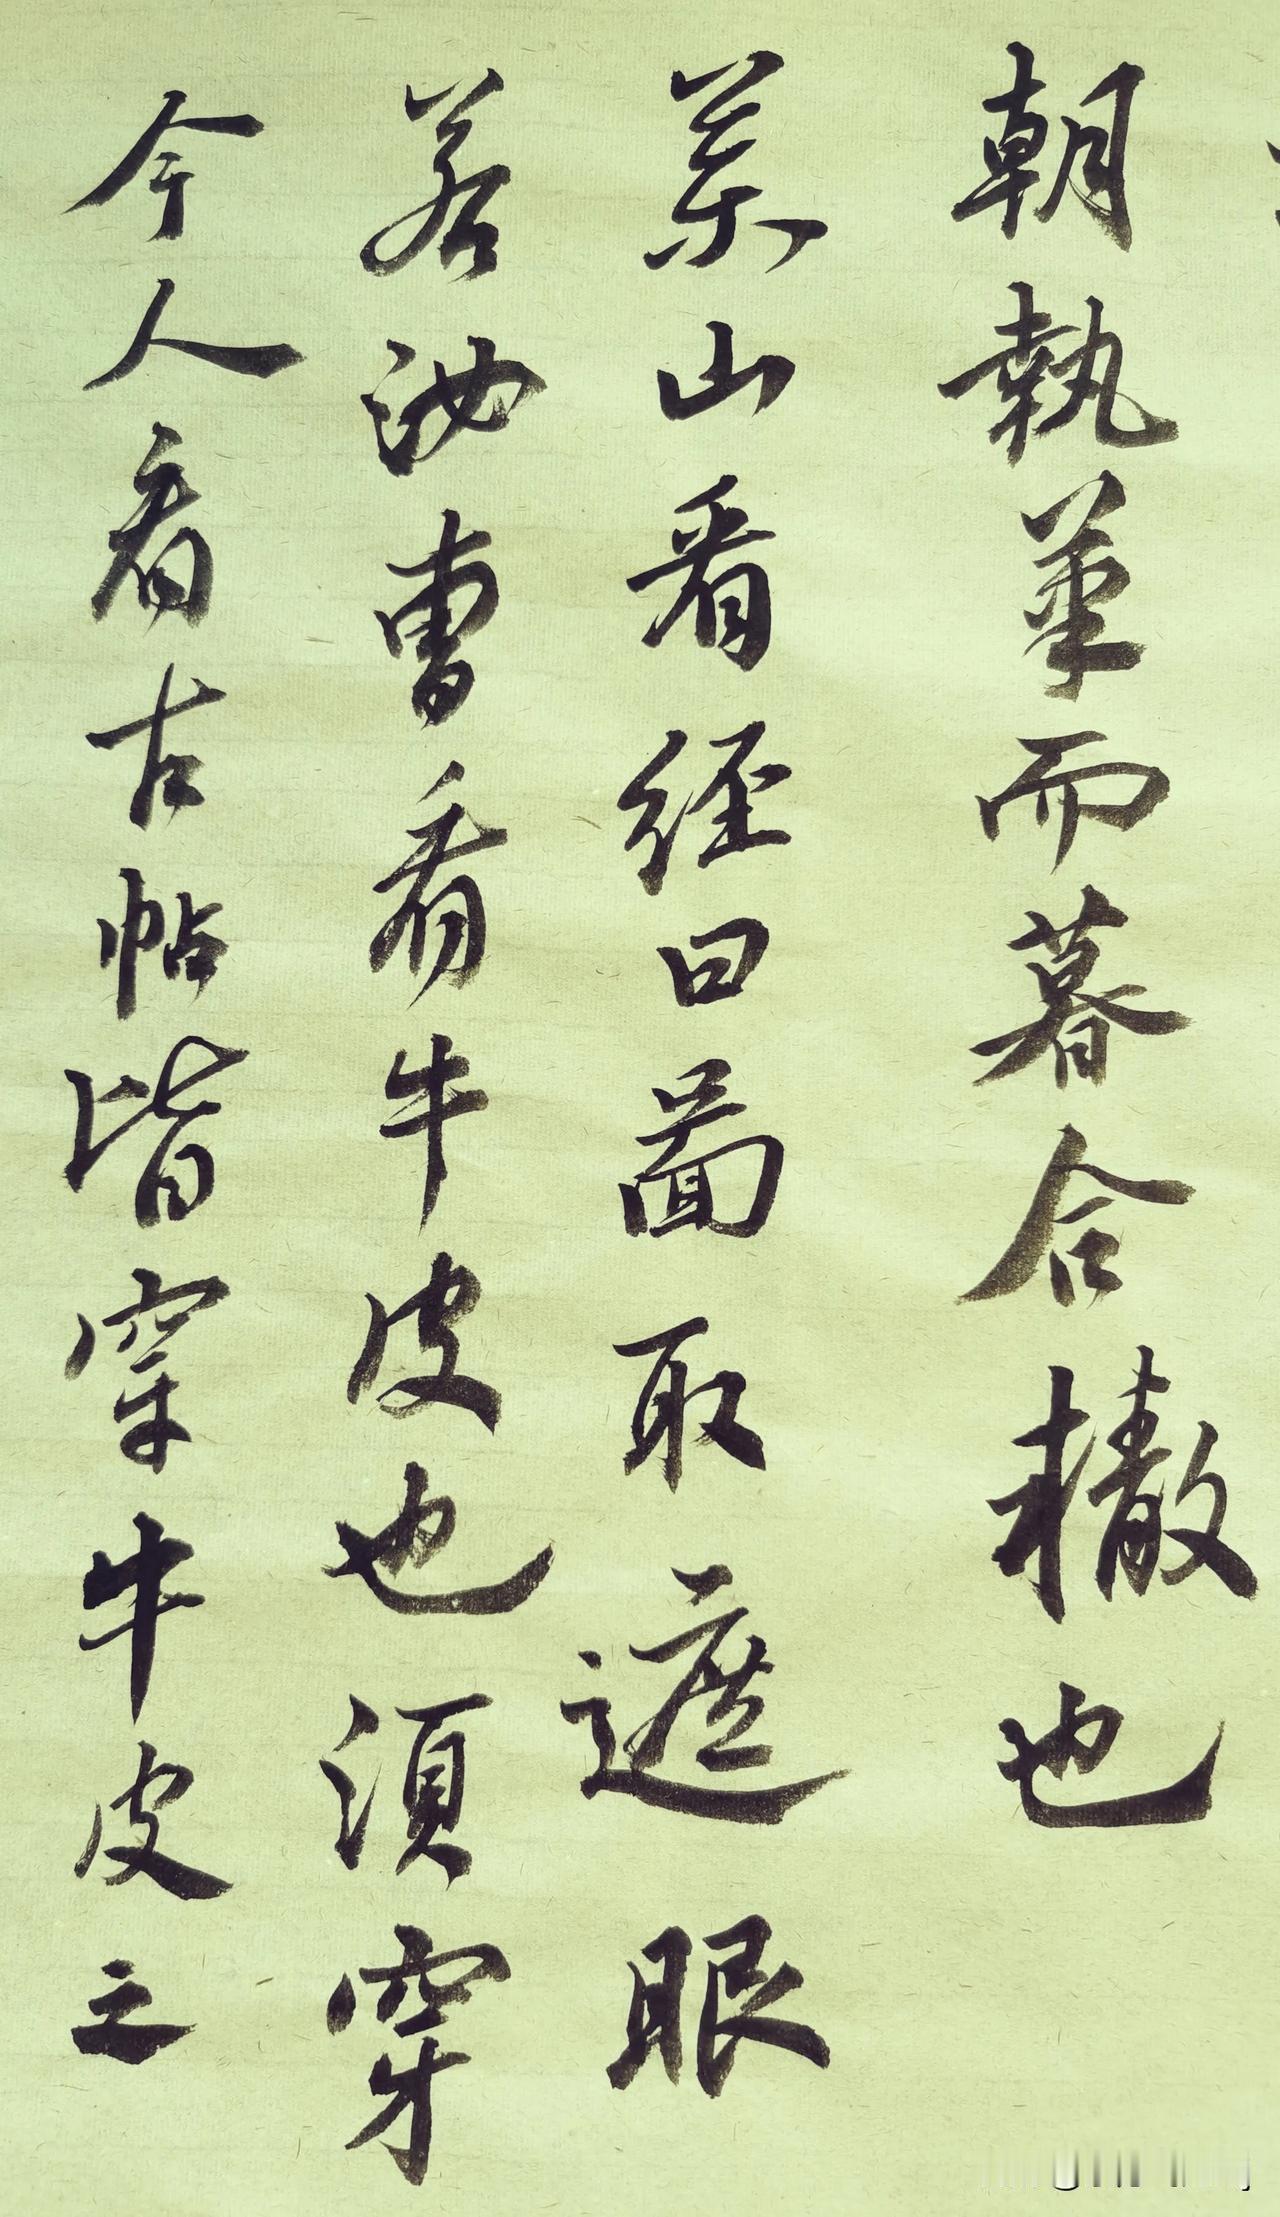 朝執筆而暮合轍也
藥山看經曰圖取遮眼
若汝曹看牛皮也須穿
今人看古帖皆穿牛皮之